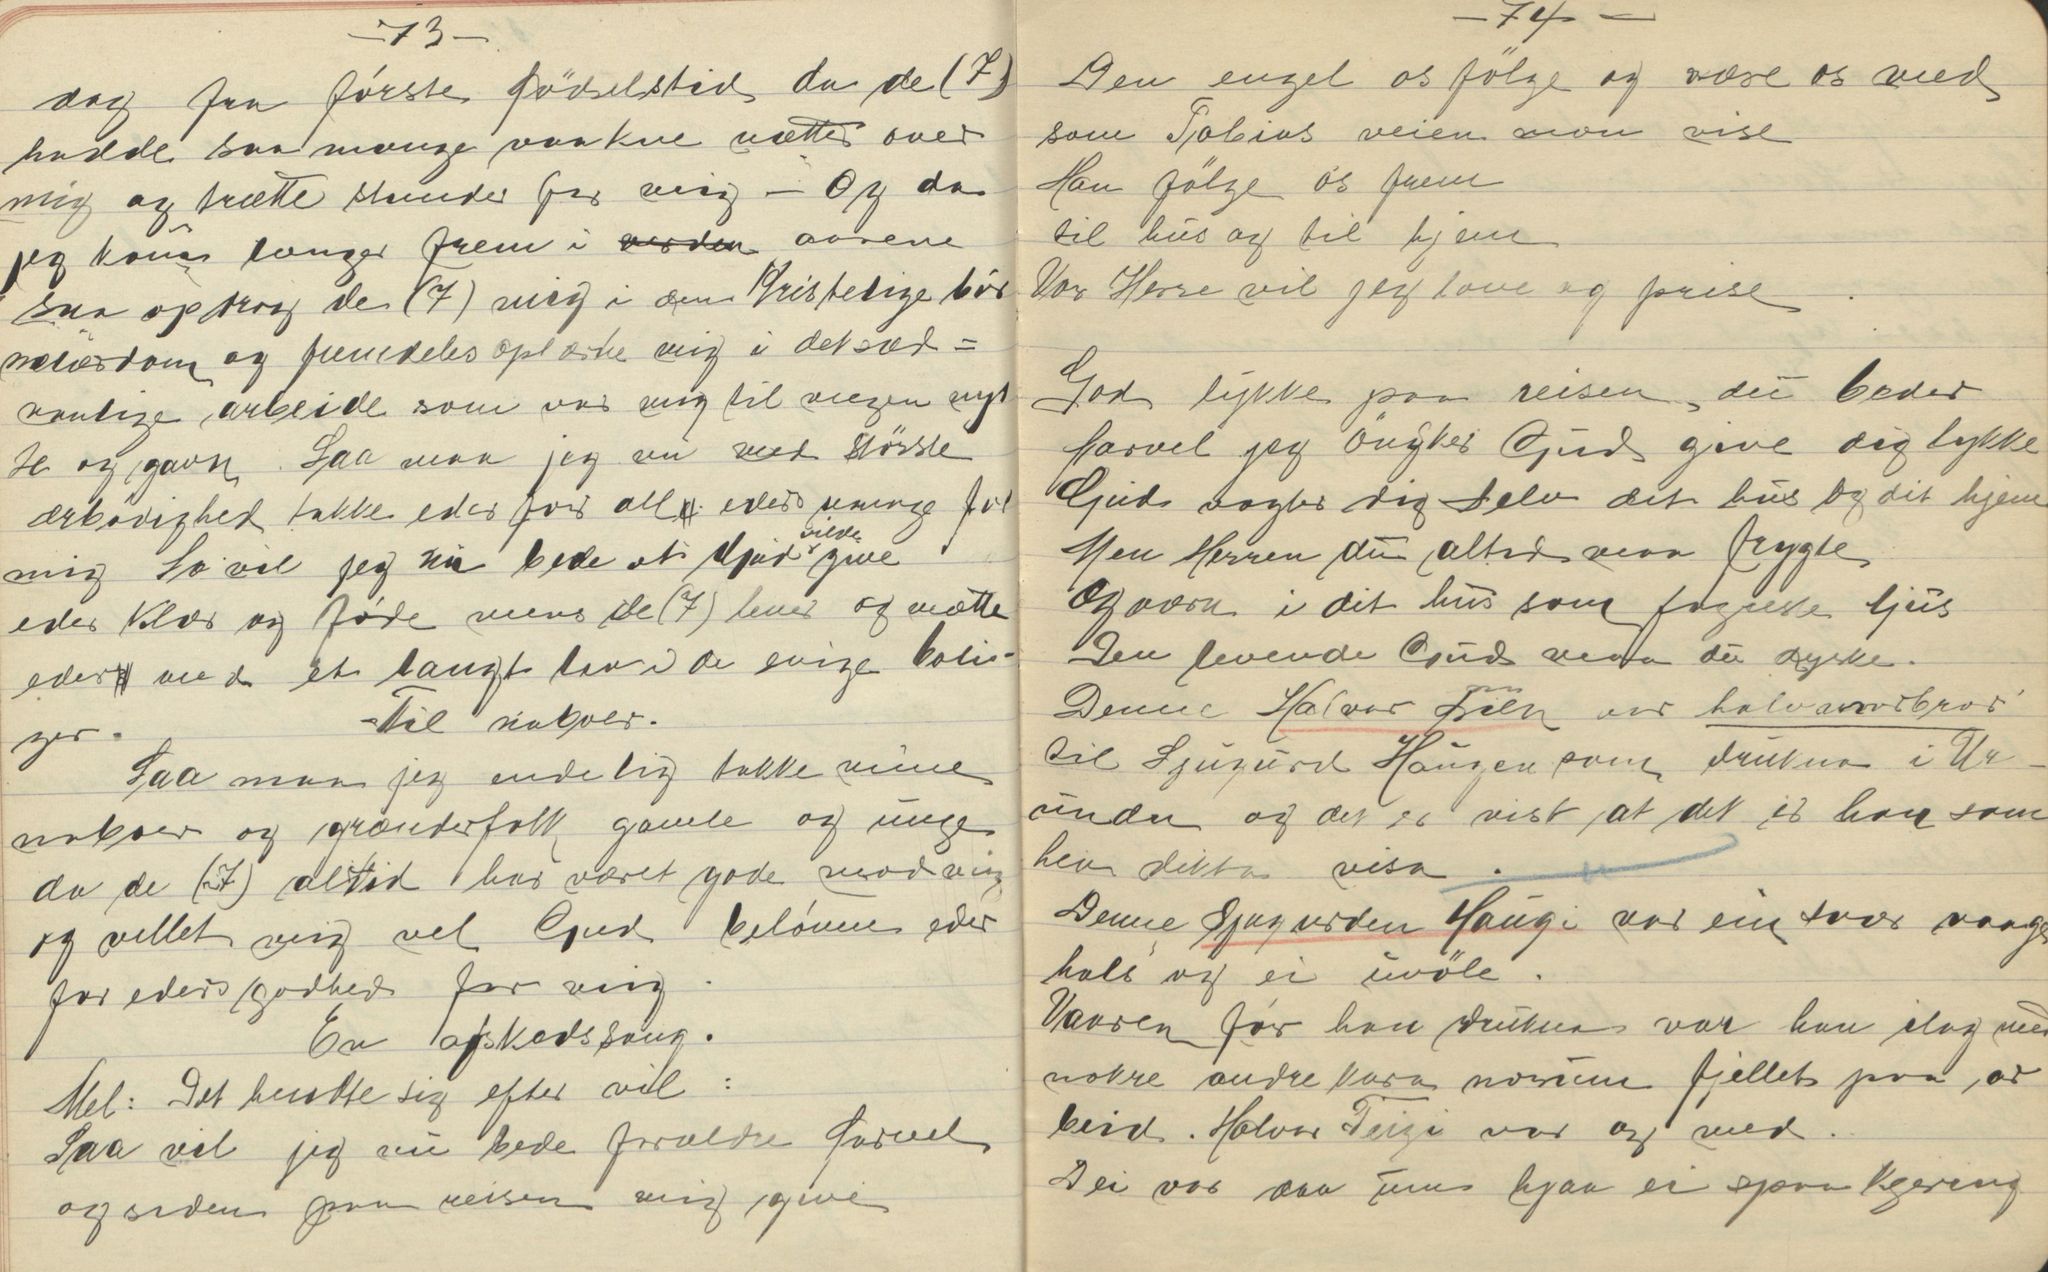 -73-
dag fra förste födselstid da de (7)
hadde saa mange vaakne nætter over
mig og trætte stunder for mig - Og da
jeg kom længer frem i verden aarene
saa opdrog de (7) mig i den Kristelige bör
nelærdom og fremdeles oplærte mig i det sæd=
vanlige arbeide som var mig til megen nyt
te og gavn. Saa maa jeg nu med störste
ærbödighed takke eder for alt eders umage for
mig So vil jeg nu bede at Gud vilde give
eder Klær og föde mens de (7) lever og mætte
eder med et langt liv i de evige boli-
ger.
Til naboer.
Saa maa jeg endelig takke mine
naboer og grænderfolk gamle og unge
da de (7) altid har været gode mod mig
og villet mig vel Gud belönne eder
for eders godhed for mig.
En afskedssang.
Mel: Det hendte sig efter vil:
Saa vil jeg nu bede forældre farvel
og siden paa reisen mig give
-74-
Den engel os fölge og være os med
som Tobias veien mon vise
Han fölge os frem
til hus og til hjem
Vor Herre vil jeg love og prise.
God lykke paa reisen, du beder
farvel jeg önsker Gud give dig lykke
Gud vogter dig selv dit hus og dit hjem
Men Herren du altid maa frygte
Og værn i dit hus som fagreste ljus
Den levende Gud maa du dyrke.
Denne Halvor va halvmorbror
til Sjugurd Haugen som drukna i Ur-
unda og det er vist at det er han som
hev dikta visa.
Denne Sjugurden Haugi var ein svær vaage
hals og ei uvöle.
Vaaren för han drukna var han ilag med
nokre andre kara norum fjellet paa ar
beid. Halvor Teigi var og med.
Dei var daa um hjaa ei spaakjering